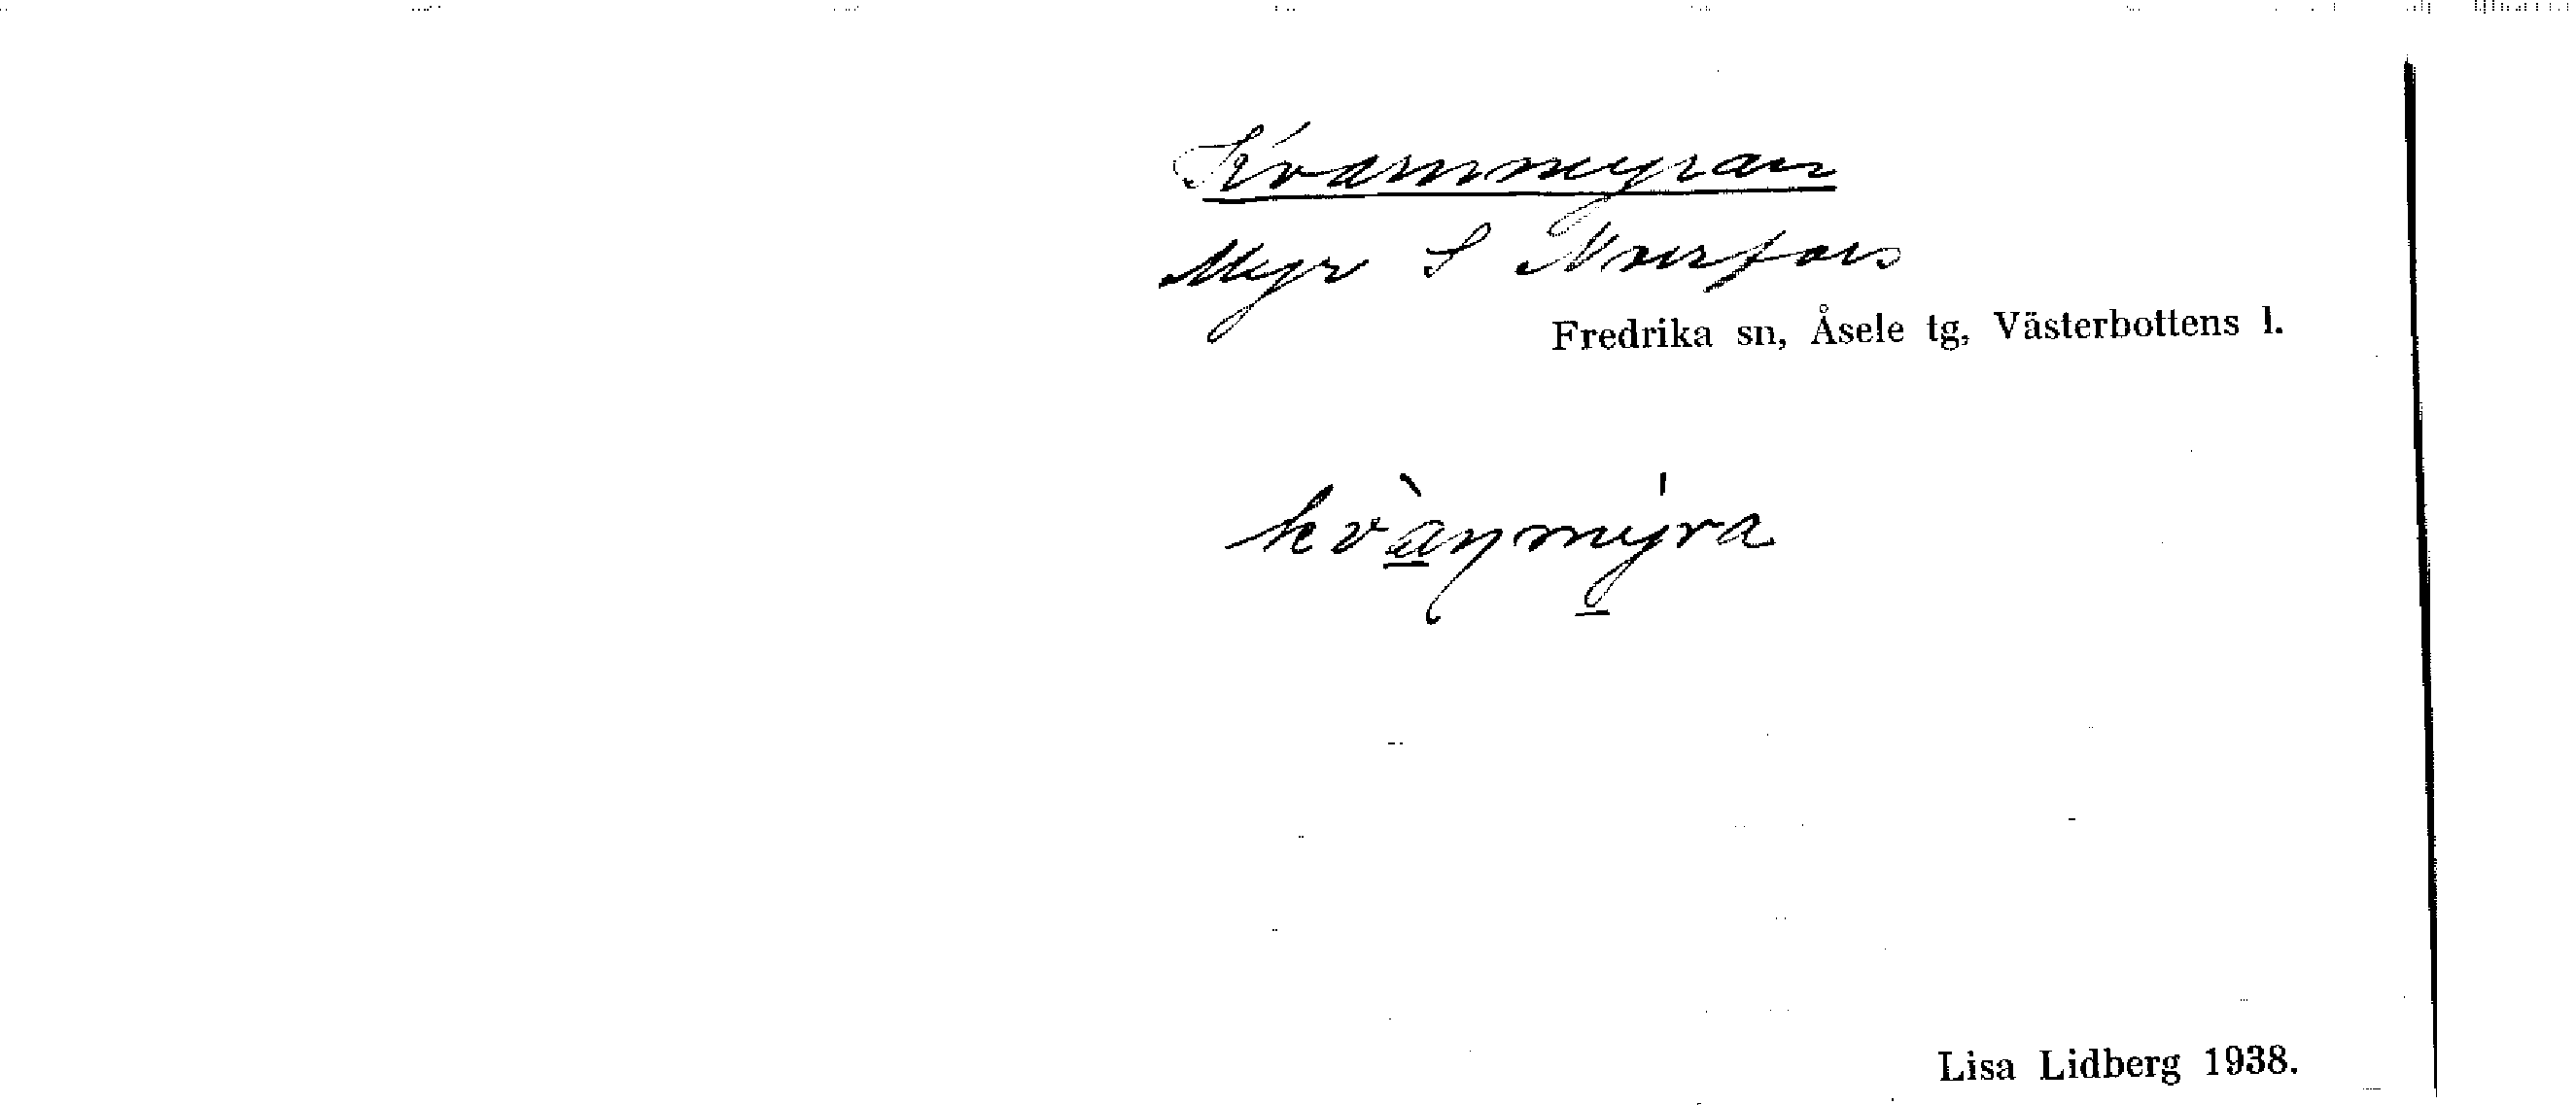 Kvarnmyran
Myr S Norrfors
Fredrika sn, Åsele tg, Västerbottens l.
kvàṇmy̍ra
Lisa Lidberg 1938.